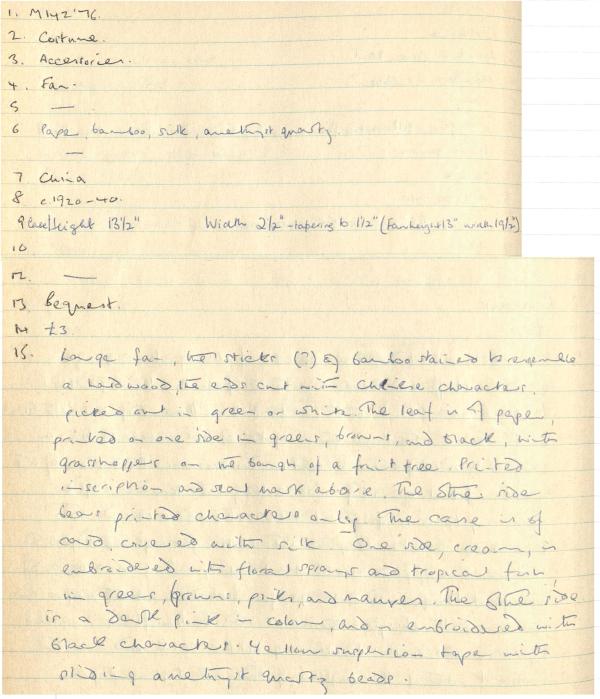 1. M142'76.
2. Costume.
3. Accessories.
4. Fan.
5 —
6 Paper, bamboo, silk, amethyst quartz
—
7 China
8 c.1920-40.
9 Case/Height 13½" Width 2½" - tapering to 1½" (Fan height 13" width 19½")
10
12. —
13 Bequest.
14 £3
15. Large fan, the sticks (?) of bamboo stained to resemble
a hardwood, the ends cut with Chinese characters,
picked out in green or white. The leaf is of paper,
printed on one side in greens, browns, and black, with
grasshoppers on the bough of a fruit tree. Printed
inscription and seal mark above. The other side
bears printed characters only. The case is of
card, covered with silk. One side, cream, is
embroidered with floral sprays and tropical fish,
in greens, browns, pinks, and mauves. The other side
is a dark pink in colour, and is embroidered with
black characters. Yellow suspension tape with
sliding amethyst quartz beads.